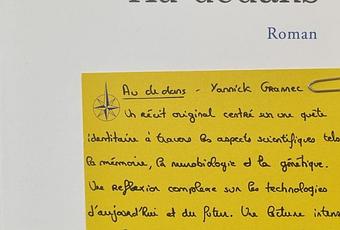 Au dedans
Roman
Au dedans - Yannick Grannec
Un récit original centré sur une quête
identitaire à travers les aspects scientifiques tels
la mémoire, la neurobiologie et la génétique.
Une réflexion complexe sur les technologies
d'aujourd'hui et du futur. Une lecture intens